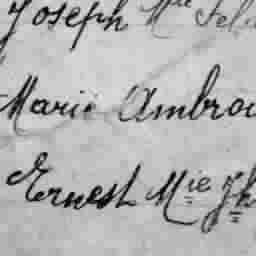 Joseph Mie Fel
Marie Ambroi
Ernest Mie Jh